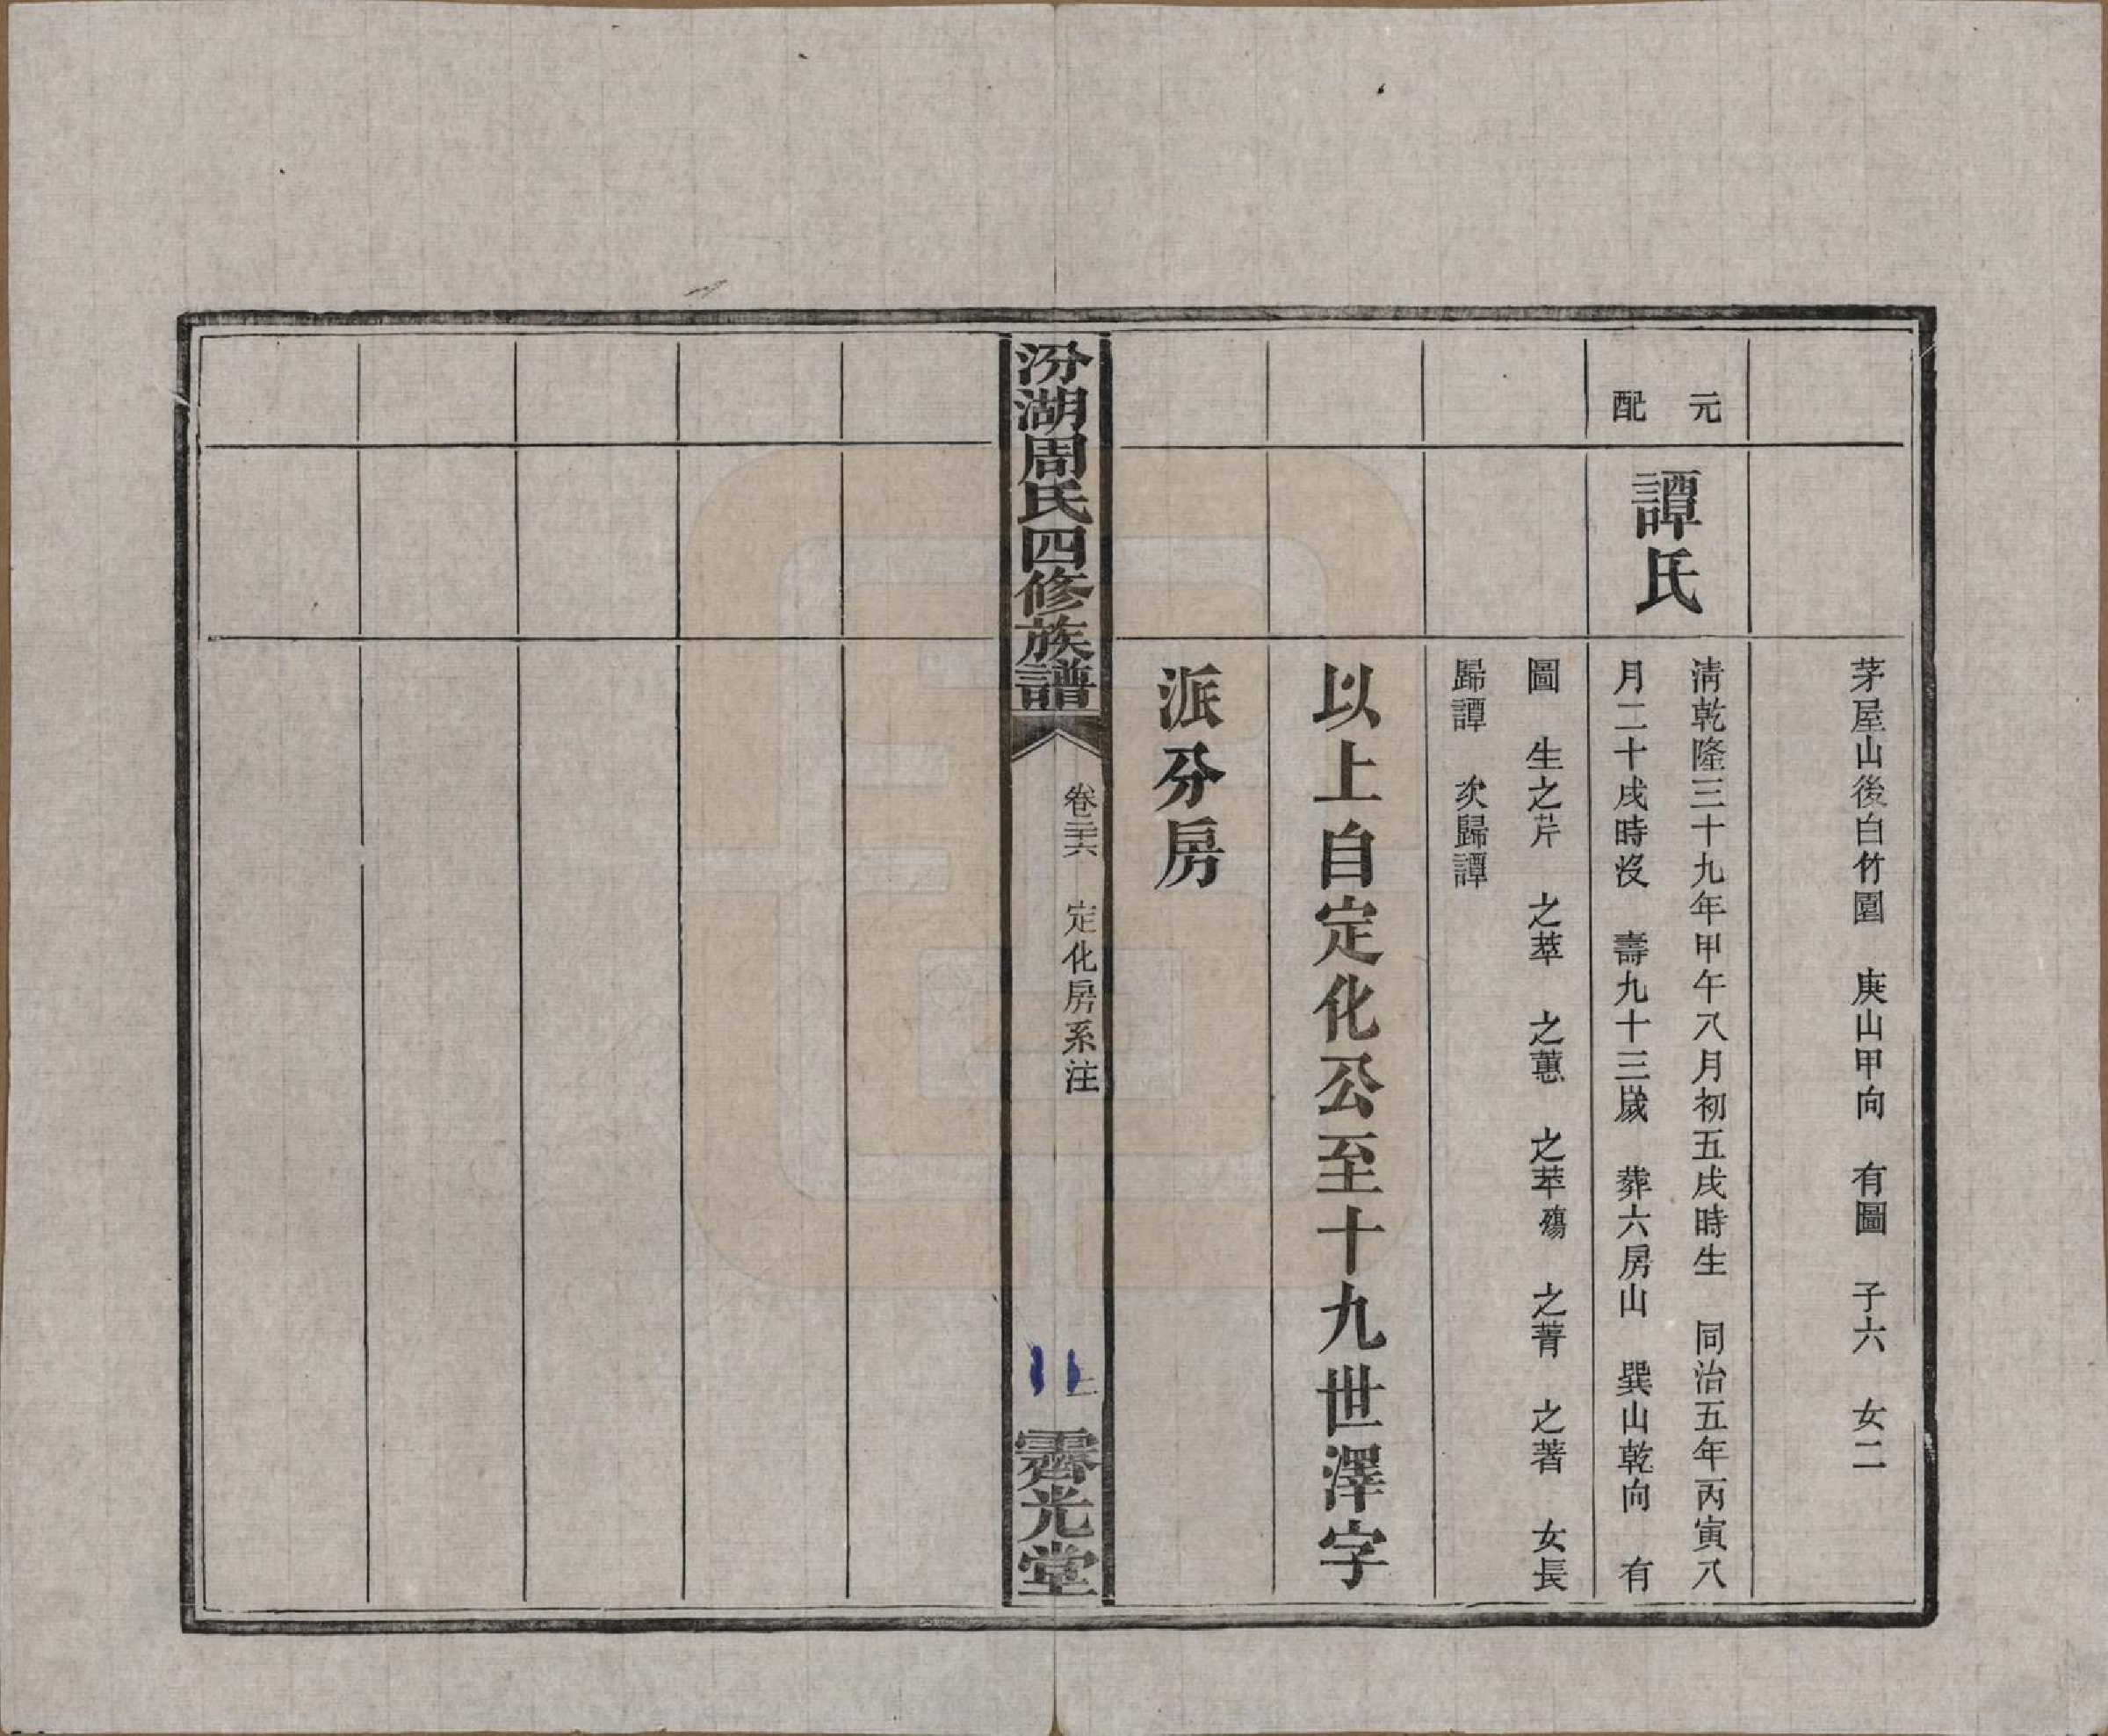 茅屋山後白竹園 庚山甲向 有圖 子六 女二
元配
譚氏
淸乾隆三十九年甲午八月初五戌時生 同治五年丙寅八
月二十戌時沒 壽九十三歲 葬六房山 巽山乾向 有
圖 生之芹 之萃 之蕙 之苹殤 之菁 之著 女長
歸譚 次歸譚
以上自定化公至十九世澤字
派分房
汾湖周氏四修族譜
卷三六 定化房系注
霽光堂